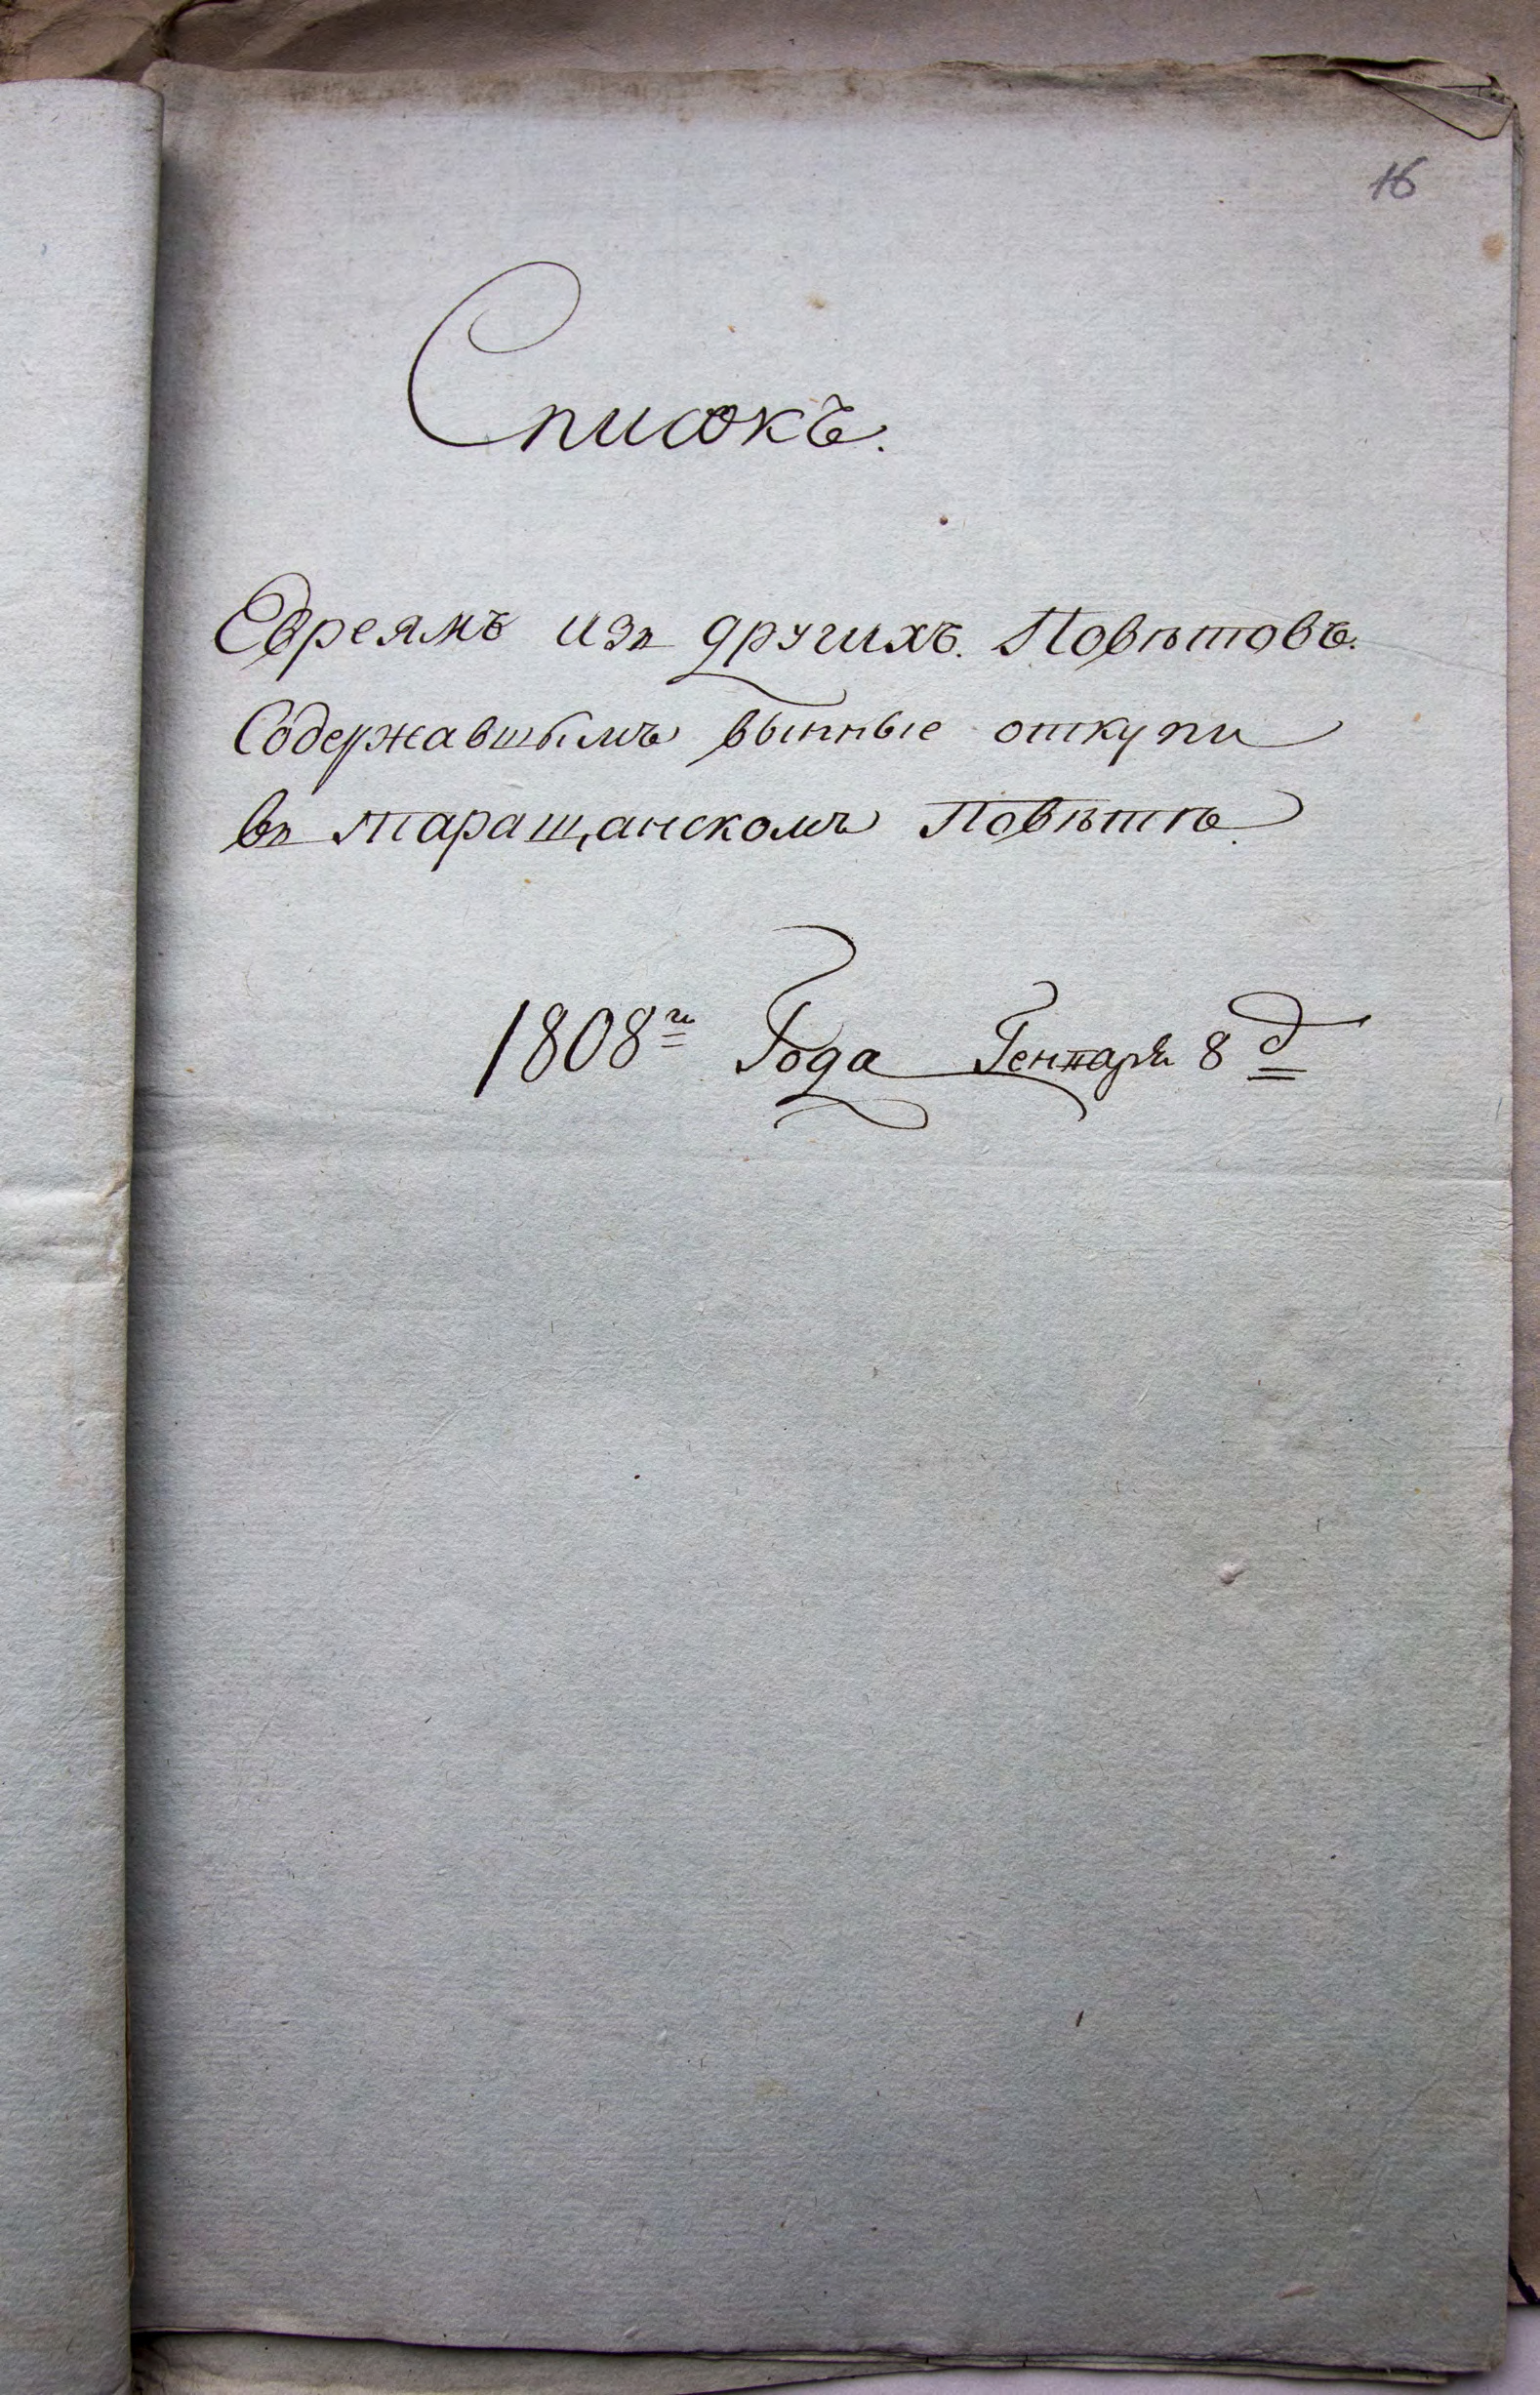 16
Списокъ.
Евреямъ изъ другихъ. Повѣтовъ.
Содержавшымъ вынные откупи
въ таращанскомъ Повѣтѣ.
1808го Года Генваря 8 д